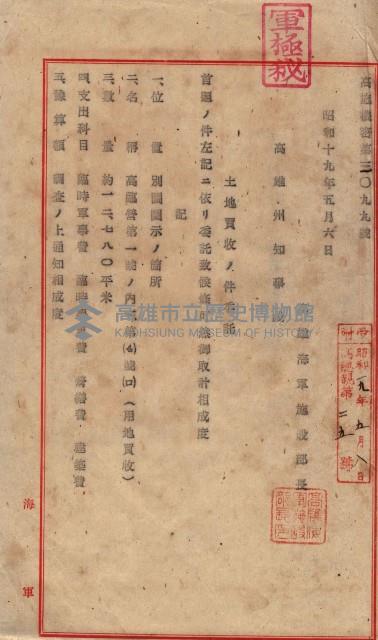 軍極秘
高施機密第三〇九九號
昭和十九年五月六日
高雄海軍施設部長
高雄州知事殿
土地買收ノ件委託
首題ノ件左記ニ依リ委託致候條可然御取計相成度
記
一、位 置 別圖圖示ノ箇所
二、名 稱 高臨營第一號ノ內
(用地買收)
三、數 量 約一二七八〇平米
四、支出科目 臨時軍事費 臨時 費 營繕費 建築費
五、豫算額 調査ノ上通知相成度
海軍
昭和一九年五月八日
第二五號
高雄市立歷史博物館
KAOHSIUNG MUSEUM OF HISTORY